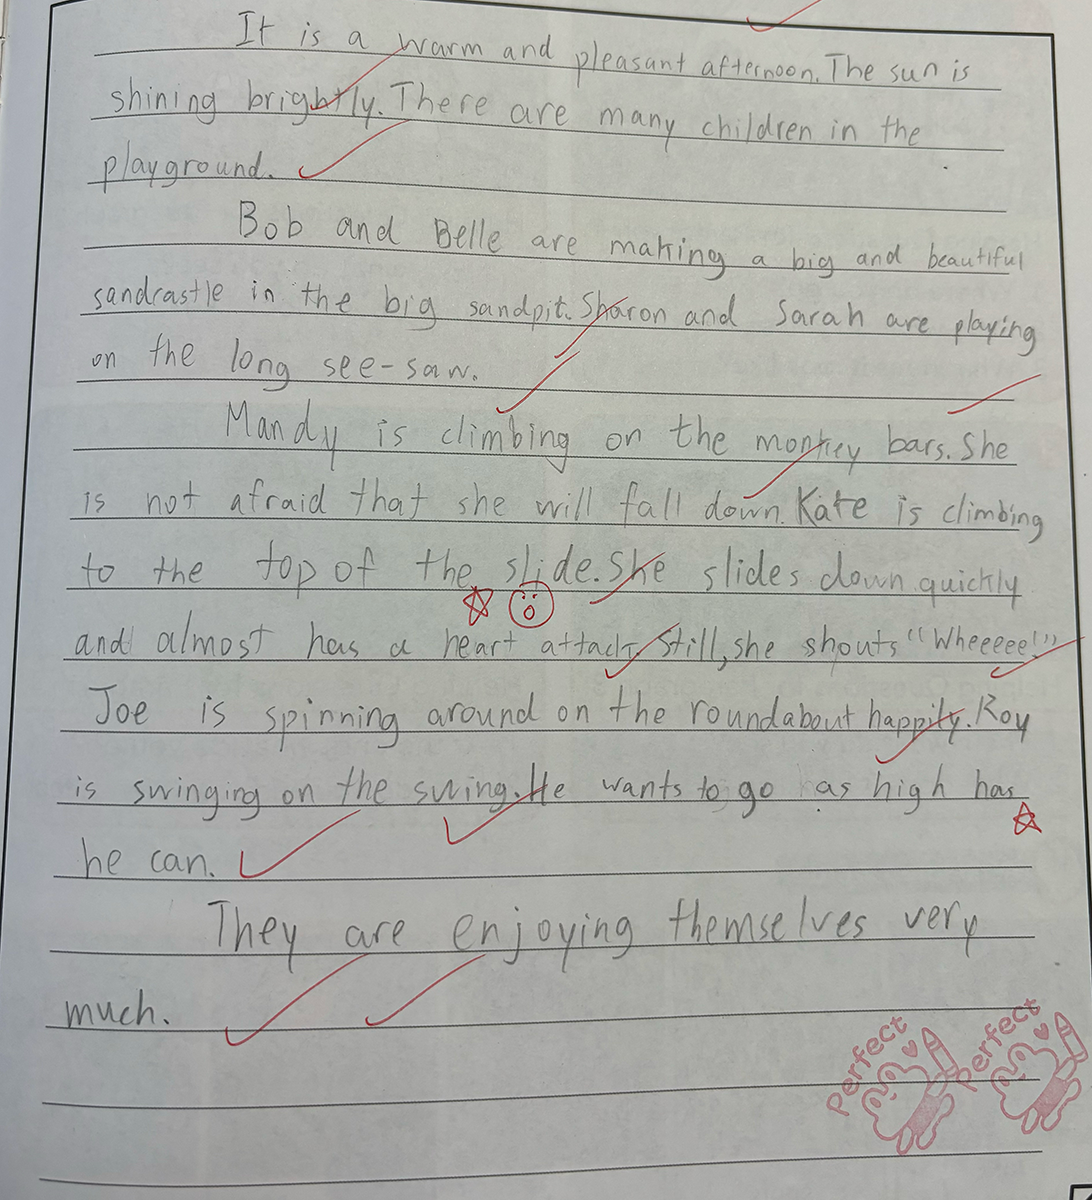 It is a warm and pleasant afternoon. The sun is
shining brightly. There are many children in the
playground.
Bob and Belle are making a big and beautiful
sandrastle in the big sandpit. Sharon and Sarah are playing
on the long see-saw.
Mandy is climbing on the monkey bars. She
is not afraid that she will fall down. Kate is climbing
to the top of the slide. She slides down quickly
and almost has a heart attack. Still, she shouts "Wheeeee!"
Joe is spinning around on the roundabout happily. Roy
is swinging on the swing. He wants to go as high has
he can.
They are enjoying themselves very
much.
Perfect
Perfect